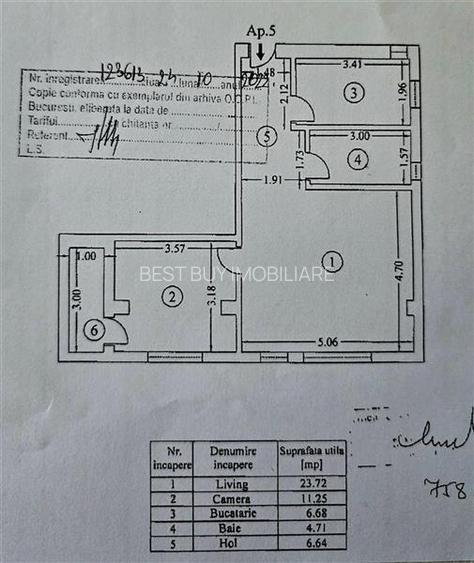 Ap.5
Nr. inregistrare 123613 ziua 24 luna 10 anul 2023
Copie conforma cu exemplarul din arhiva O.C.P.I.
Bucuresti, eliberata la data de
Tariful chitanta nr. /
Referent
L.S.
1.48
3.41
2.12
3
1.96
5
3.00
1.73
4
1.57
1.91
1.00
3.57
1
4.70
BEST BUY IMOBILIARE
3.00
2
3.18
6
5.06
758
Nr. incapere Denumire incapere Suprafata utila [mp]
1 Living 23.72
2 Camera 11.25
3 Bucatarie 6.68
4 Baie 4.71
5 Hol 6.64